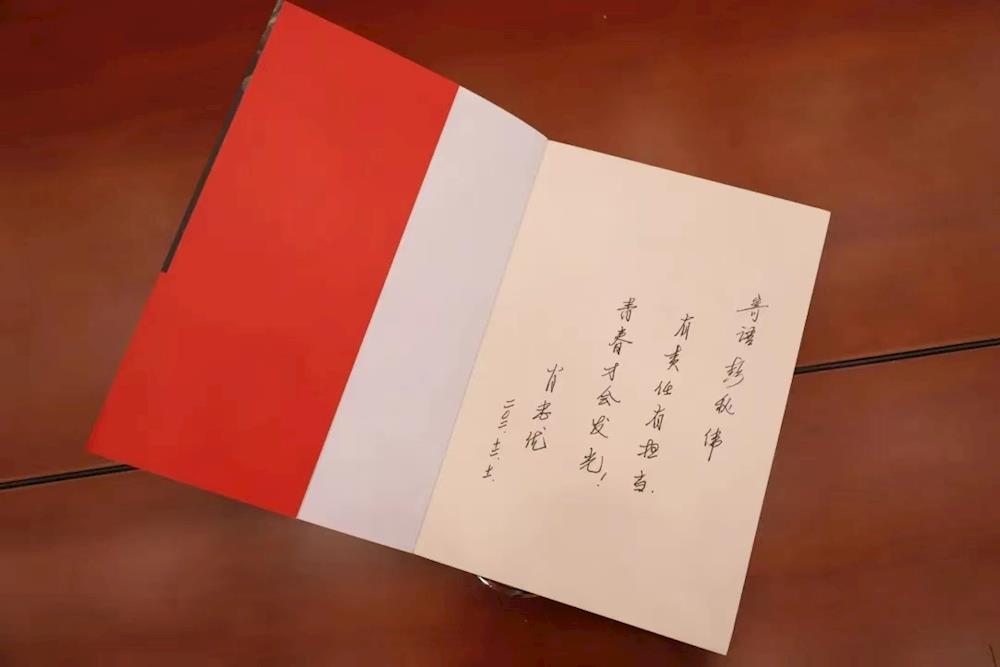 寄语彭秋伟
有责任有担当.
青春才会发光!
肖思优
二〇二〇.十二.十.